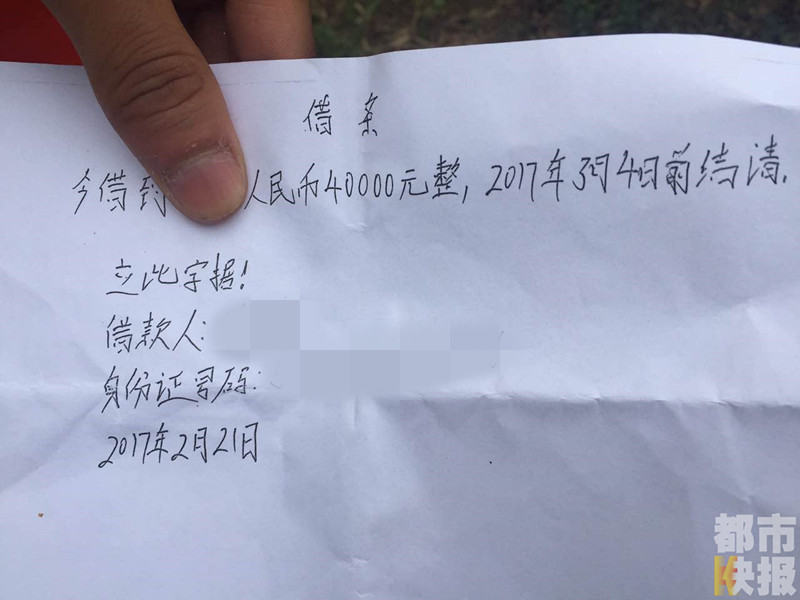 借条
今借到 人民币40000元整，2017年3月4日前结清.
立此字据!
借款人:
身份证号码:
2017年2月21日
都市
快报